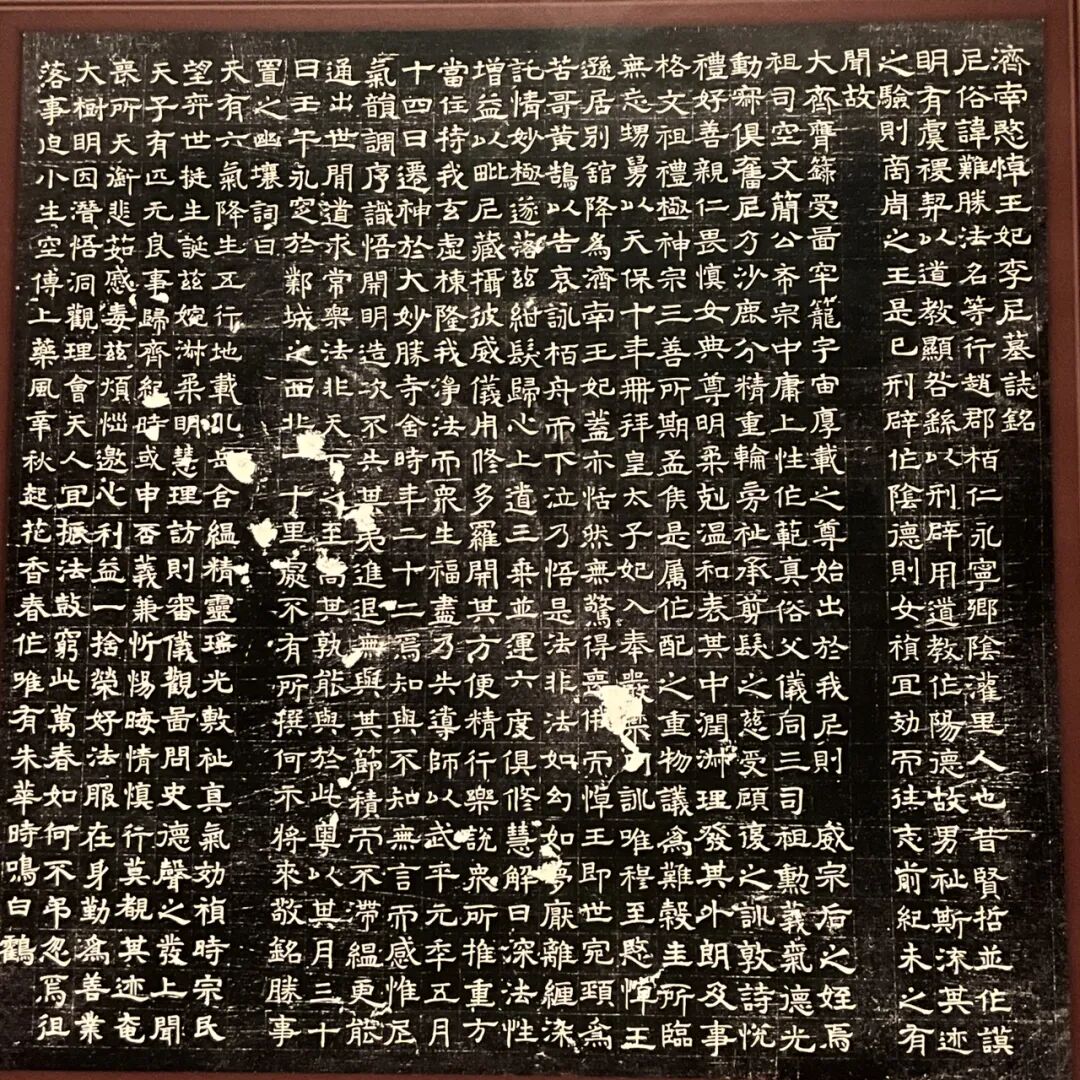 濟南愍悼王妃李尼墓誌銘
尼俗諱難勝法名等行趙郡栢仁永寧鄉陰灌里人也昔賢哲並作謨
明有虞稷契以道教顯咎繇以刑辟用道教作陽德故男祉斯流其迹
之驗則商周之王是已刑辟作陰德則女禎宜効而往志前紀未之有
聞故
大齊膺籙受啚牢籠宇宙厚載之尊始出於我尼則 威宗后之姪焉
祖司空文簡公希宗中庸上性作範真俗父儀同三司祖勳義氣德光
動宷俱奮尼乃沙鹿分精重輪旁祉承剪髮之慈受顧復之訓敦詩悅
禮好善親仁畏慎女典尊明柔剋温和表其中潤淋理發其外朗及事
格文祖禮極神宗三善所期孟侯是属作配之重物議為難穀圭所臨
無忘甥舅以天保十年冊拜皇太子妃入奉嚴禁内訓唯穆至愍悼王
遜居別舘降為濟南王妃蓋亦恬然無驚得喪俄而悼王即世宛頸為
苦哥黃鵠以告哀詠栢舟而下泣乃悟是法非法如幻如夢厭離纏染
託情妙極遂落兹紺髮歸心上道三乗並運六度俱修慧解日深法性
增益以毗尼藏攝彼威儀用修多羅開其方便精行樂說衆所推重方
當住持我玄虛棟隆我淨法而衆生福盡乃失導師以武平元年五月
十四日遷神於大妙勝寺舍時年二十二焉知與不知無言而感惟尼
氣韻調序識悟開明造次不失其夷進退無與其節積而不滯緼更能
通出世間道求常樂法非天下之至高其孰能與於此粤以其月三十
日壬午永窆於鄴城之西北十里處不有所撰何示將來敬銘勝事
置之幽壤詞曰
天有六氣降生五行地載岳合緼精靈瑤光敷祉真氣効禎時宗民
望弈世挺生誕兹婉淋柔明慧理訪則審儀觀啚問史德聲之發上聞
天子有匹元良事歸齊紀時或申否義兼忻惕晦情慎行莫覩其迹奄
喪所天銜悲茹感毒兹煩惱邀心利益一捨榮好法服在身勤為善業
大樹明因潛悟洞觀理會天人宜振法鼓窮此萬春如何不弔忽焉徂
落事迫小生空傳上藥風幸秋起花香春作唯有朱華時鳴白鶴